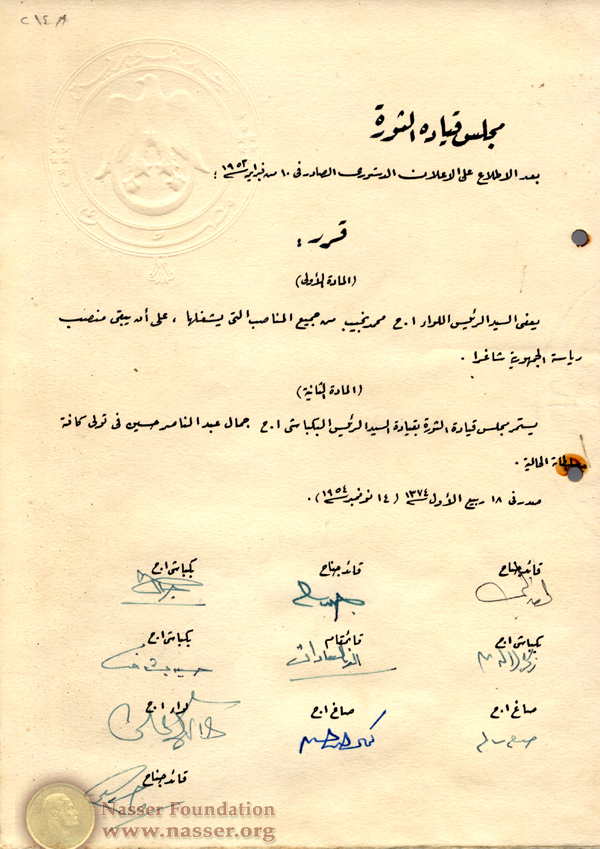 ٢١٤٨
مجلس قيادة الثورة
بعد الاطلاع على الاعلان الدستورى الصادر فى ١٠ من فبراير ١٩٥٣ ؛
قرر :
(المادة الأولى)
يعفى السيد الرئيس اللواء ا.ح محمد نجيب من جميع المناصب التى يشغلها ، على أن يبقى منصب
رياسة الجمهورية شاغرا .
(المادة الثانية)
يستمر مجلس قيادة الثورة بقيادة السيد الرئيس البكباشى ا.ح جمال عبد الناصر حسين فى تولى كافة
سلطاته الحالية .
صدر فى ١٨ ربيع الأول ١٣٧٤ (١٤ نوفمبر ١٩٥٤) .
قائد جناح قائد جناح بكباشى ا.ح
بكباشى ا.ح قائمقام بكباشى ا.ح
أنور السادات حسين
صاغ ا.ح صاغ ا.ح لواء ا.ح
صلاح سالم كمال الدين حسين
قائد جناح
Nasser Foundation
www.nasser.org